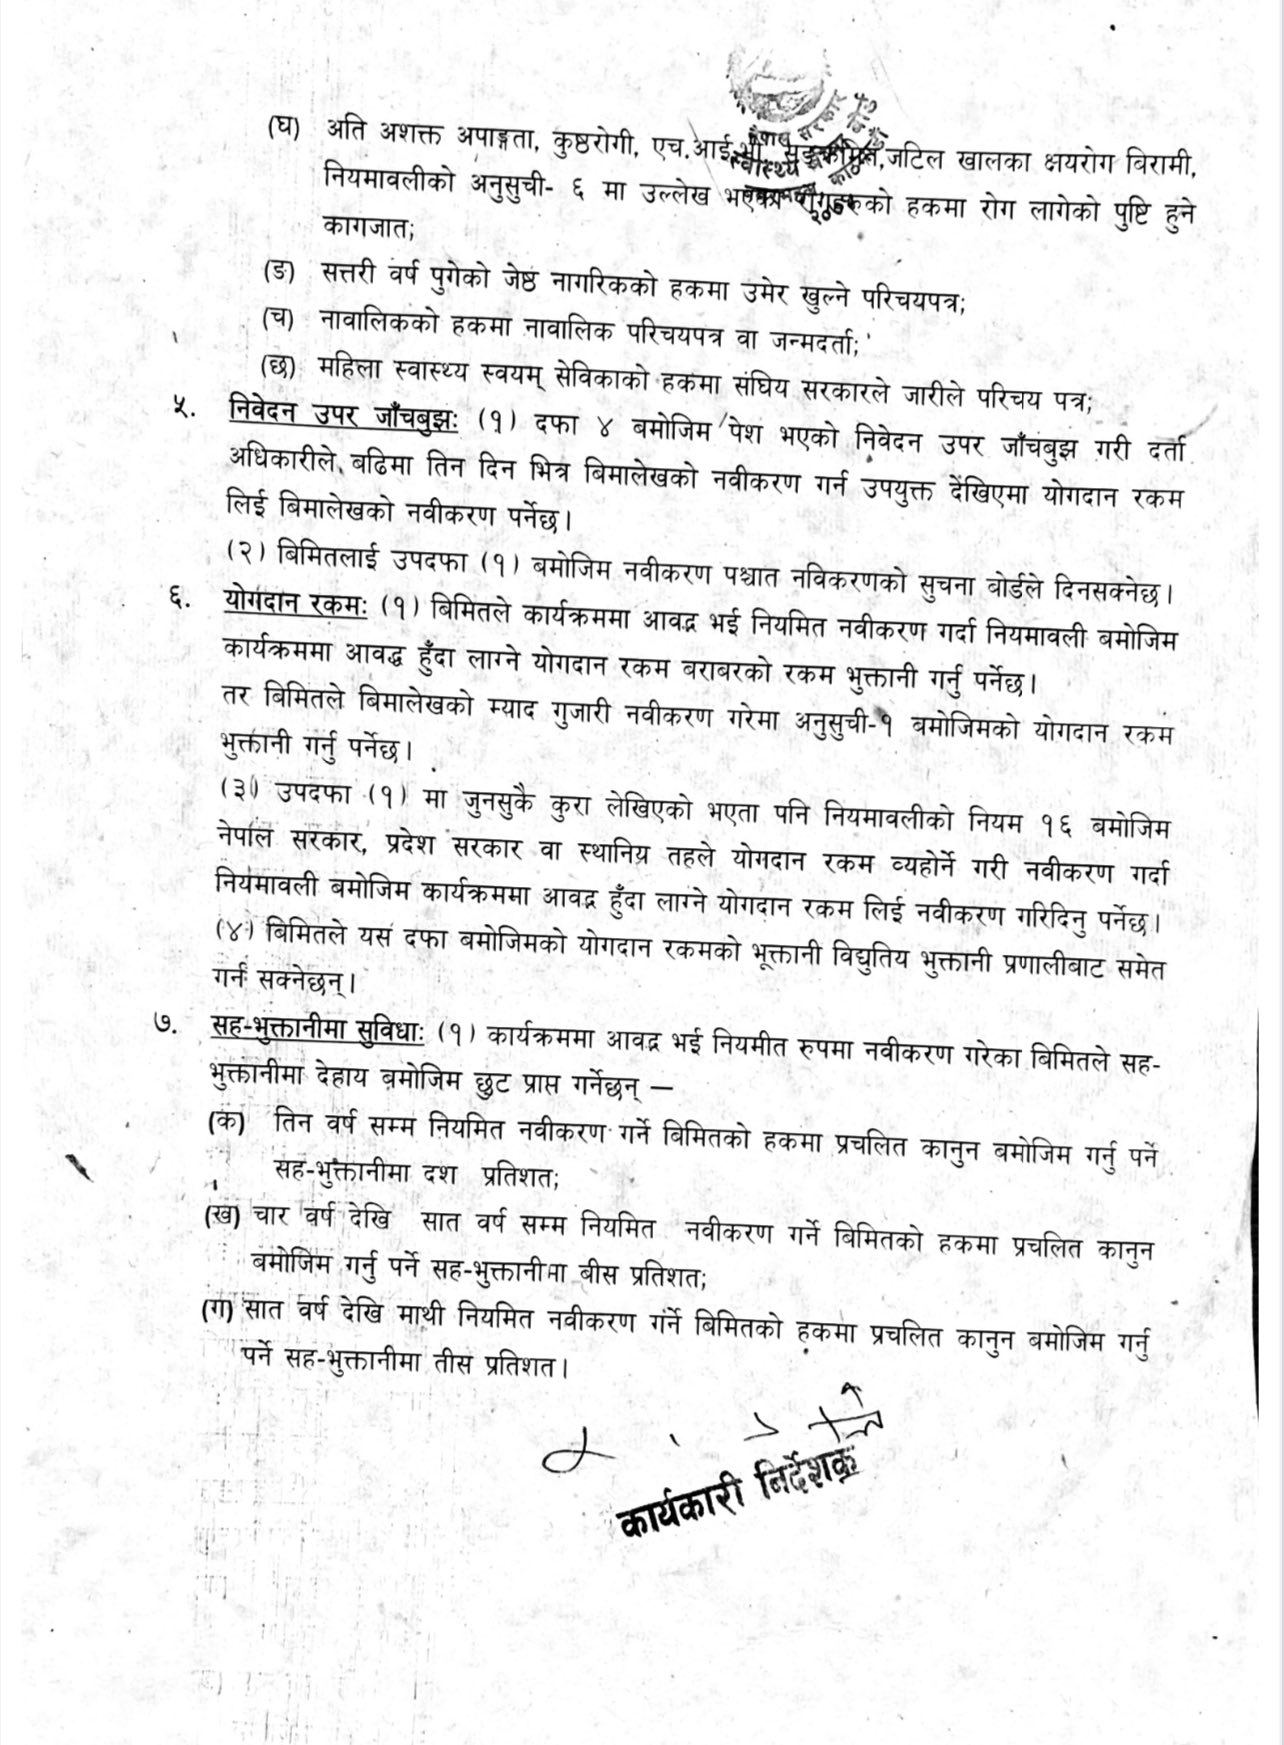 (घ) अति अशक्त अपाङ्गता, कुष्ठरोगी, एच.आई.भी. सङ्क्रमित,जटिल खालका क्षयरोग बिरामी,
नियमावलीको अनुसुची- ६ मा उल्लेख भएका रोगहरुको हकमा रोग लागेको पुष्टि हुने
कागजात;
(ङ) सत्तरी वर्ष पुगेको जेष्ठ नागरिकको हकमा उमेर खुल्ने परिचयपत्र;
(च) नावालिकको हकमा नावालिक परिचयपत्र वा जन्मदर्ता;
(छ) महिला स्वास्थ्य स्वयम् सेविकाको हकमा संघिय सरकारले जारीले परिचय पत्र;
५. निवेदन उपर जाँचबुझः (१) दफा ४ बमोजिम पेश भएको निवेदन उपर जाँचबुझ गरी दर्ता
अधिकारीले बढिमा तिन दिन भित्र बिमालेखको नवीकरण गर्न उपयुक्त देखिएमा योगदान रकम
लिई बिमालेखको नवीकरण पर्नेछ।
(२) बिमितलाई उपदफा (१) बमोजिम नवीकरण पश्चात नविकरणको सुचना बोर्डले दिनसक्नेछ।
६. योगदान रकमः (१) बिमितले कार्यक्रममा आवद्ध भई नियमित नवीकरण गर्दा नियमावली बमोजिम
कार्यक्रममा आवद्ध हुँदा लाग्ने योगदान रकम बराबरको रकम भुक्तानी गर्नु पर्नेछ।
तर बिमितले बिमालेखको म्याद गुजारी नवीकरण गरेमा अनुसुची-१ बमोजिमको योगदान रकम
भुक्तानी गर्नु पर्नेछ।
(३) उपदफा (१) मा जुनसुकै कुरा लेखिएको भएता पनि नियमावलीको नियम १६ बमोजिम
नेपाल सरकार, प्रदेश सरकार वा स्थानिय तहले योगदान रकम व्यहोर्ने गरी नवीकरण गर्दा
नियमावली बमोजिम कार्यक्रममा आवद्ध हुँदा लाग्ने योगदान रकम लिई नवीकरण गरिदिनु पर्नेछ।
(४) बिमितले यस दफा बमोजिमको योगदान रकमको भूक्तानी विद्युतिय भुक्तानी प्रणालीबाट समेत
गर्न सक्नेछन्।
७. सह-भुक्तानीमा सुविधाः (१) कार्यक्रममा आवद्ध भई नियमीत रुपमा नवीकरण गरेका बिमितले सह-
भुक्तानीमा देहाय बमोजिम छुट प्राप्त गर्नेछन् —
(क) तिन वर्ष सम्म नियमित नवीकरण गर्ने बिमितको हकमा प्रचलित कानुन बमोजिम गर्नु पर्ने
सह-भुक्तानीमा दश प्रतिशत;
(ख) चार वर्ष देखि सात वर्ष सम्म नियमित नवीकरण गर्ने बिमितको हकमा प्रचलित कानुन
बमोजिम गर्नु पर्ने सह-भुक्तानीमा बीस प्रतिशत;
(ग) सात वर्ष देखि माथी नियमित नवीकरण गर्ने बिमितको हकमा प्रचलित कानुन बमोजिम गर्नु
पर्ने सह-भुक्तानीमा तीस प्रतिशत।
कार्यकारी निर्देशक